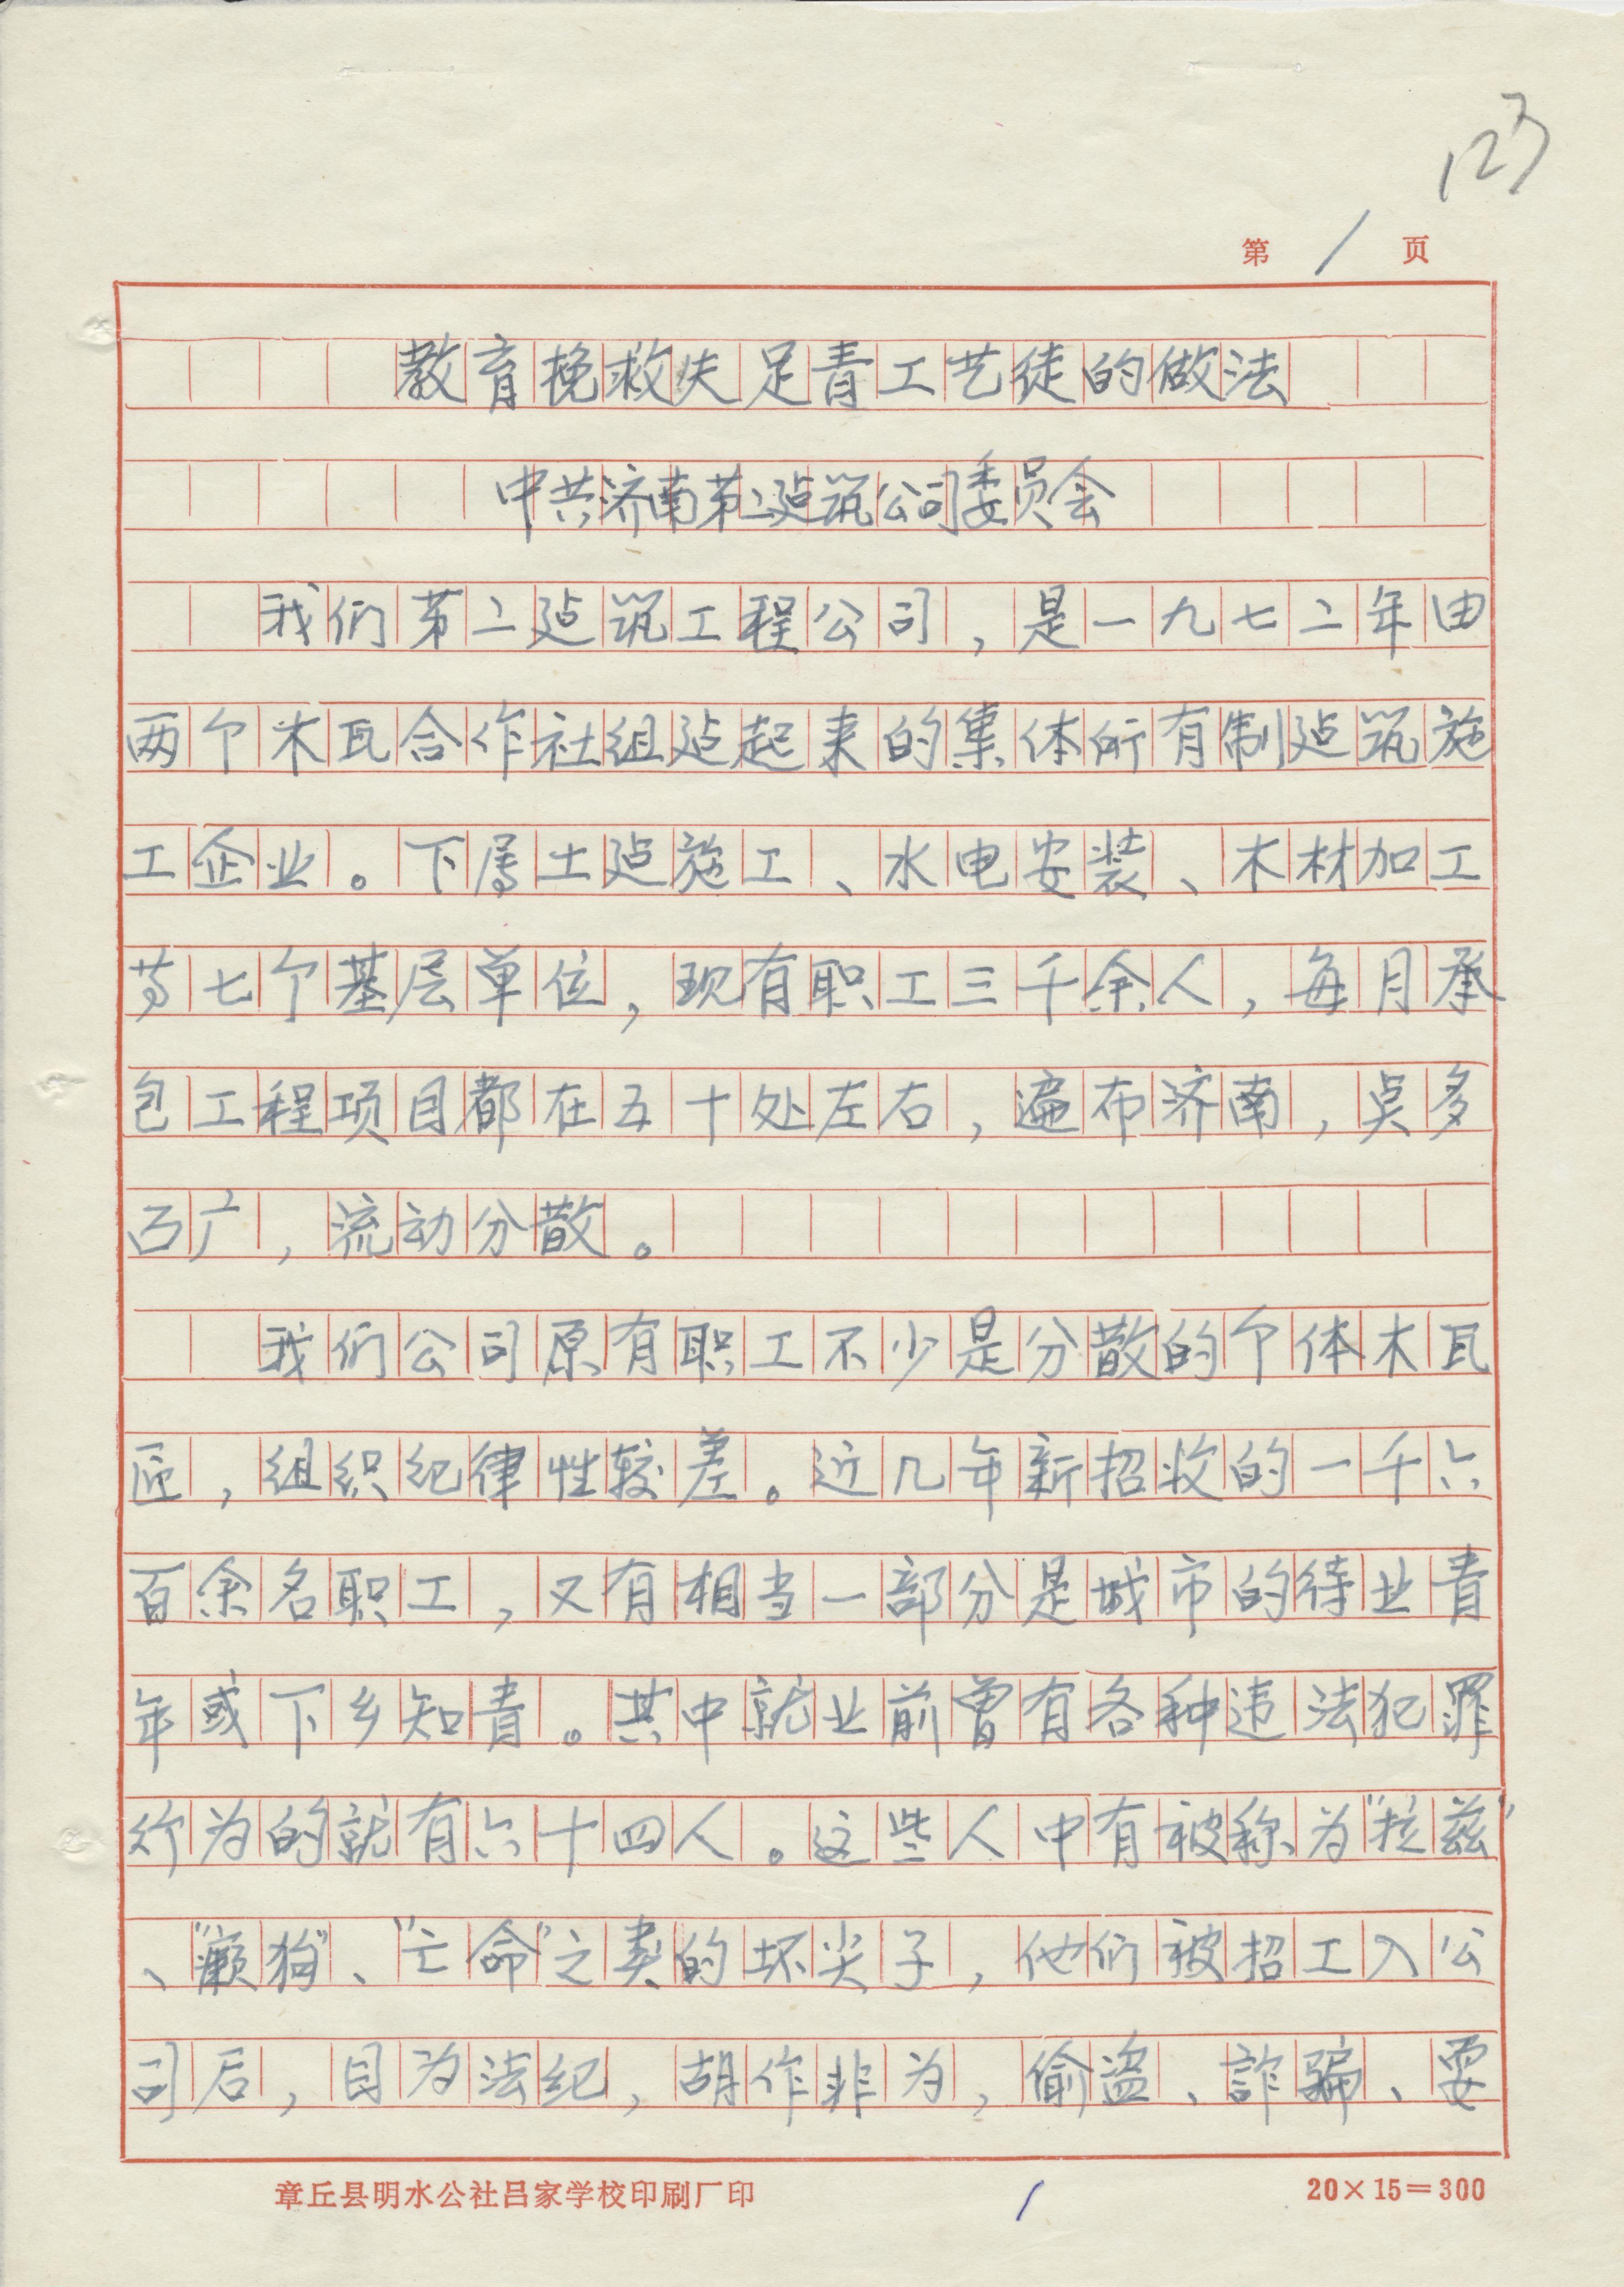 123
第1页
教育挽救失足青工艺徒的做法
中共济南第二建筑公司委员会
我们第二建筑工程公司，是一九七二年由
两个木瓦合作社组建起来的集体所有制建筑施
工企业。下属土建施工、水电安装、木材加工
等七个基层单位，现有职工三千余人，每月承
包工程项目都在五十处左右，遍布济南，点多
面广，流动分散。
我们公司原有职工不少是分散的个体木瓦
匠，组织纪律性较差。近几年新招收的一千六
百余名职工，又有相当一部分是城市的待业青
年或下乡知青。其中就业前曾有各种违法犯罪
行为的就有六十四人。这些人中有被称为“拉兹”
、“癞狗”、“亡命”之类的坏尖子，他们被招工入公
司后，目为法纪，胡作非为，偷盗、诈骗、耍
章丘县明水公社吕家学校印刷厂印
1
20×15=300